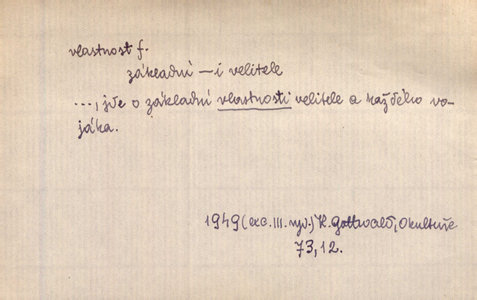 vlastnost f.
základní —i velitele
..., jde o základní vlastnosti velitele a každého vo-
jáka.
1949 (exc. III. vyd.) K. Gottwald, O kultuře
73, 12.